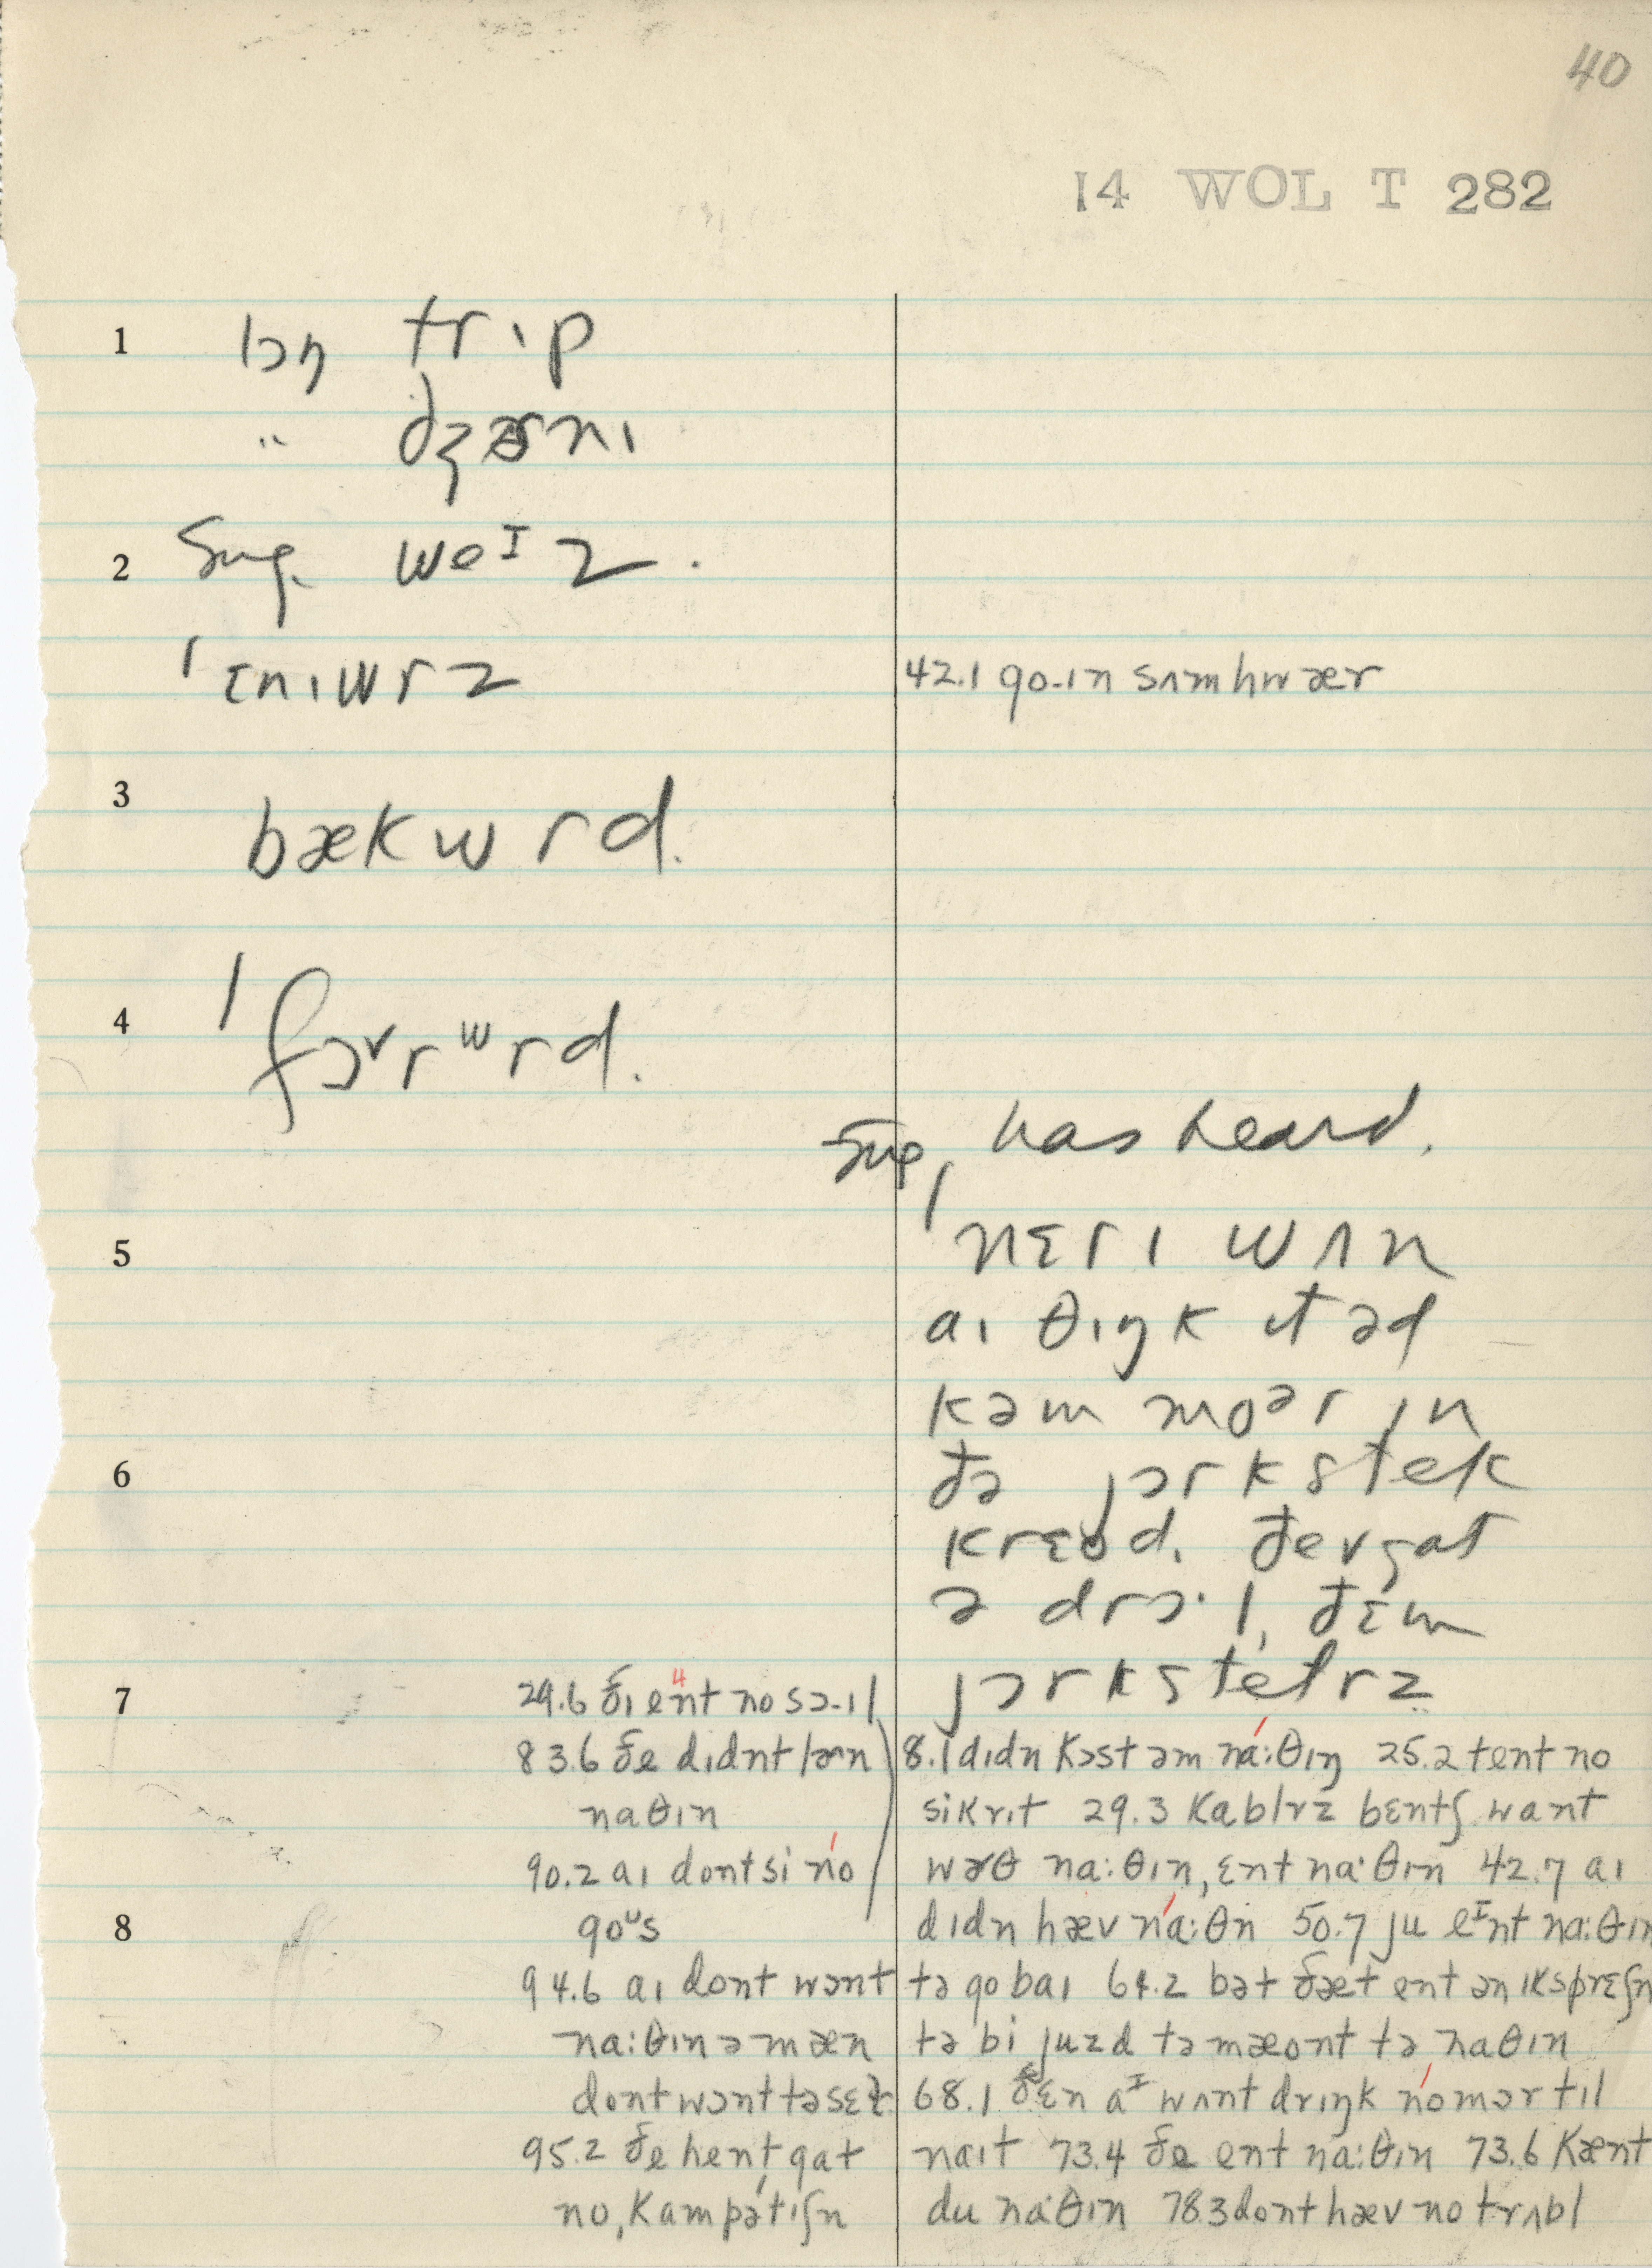 40
14 WOL T 282
1 lɔŋ trɪp
" dʒɚnɪ
2 Sug. weᴵz.
ˈɛnɪwrz
42.1 go-ɪn sʌmhwær
3 bækwrd.
4 ˈfɔˇrʷrd.
Sug, has heard.
5 ˈnɛrɪ wʌn
aɪ θɪŋk ɪt əd
kəm moᵊr ɪn
6 ðə jɔrkstek
krɛod. ðev gat
ə drɔ·l, ðɛm
jɔrkstetrz
7 29.6 ðɪ ent no sɔ-ɪl
83.6 ðe dɪdnt lɚn
naθɪn
90.2 aɪ dont si no
8 goᵘs
94.6 aɪ dont wɔnt
na:θɪn ə mæn
dont wɔnt tə sɛl
95.2 ðe hent gat
no, kampətɪʃn
8.1 dɪdn kɔst əm na:θɪŋ 25.2 tent no
sikrɪt 29.3 kablrz bɛntʃ want
wɚθ na:θɪn, ɛnt na·θɪn 42.7 aɪ
dɪdn hæv na:θn 50.7 ju eᴵnt na:θɪn
tə go baɪ 64.2 bət ðæt ent ən ɪksprɛʃn
tə bi juzd tə mæont tə naθɪn
68.1 ðɛn aᴵ wʌnt drɪŋk no mɔr tɪl
naɪt 73.4 ðe ent na:θɪn 73.6 kænt
du na·θɪn 78.3 dont hæv no trʌbl